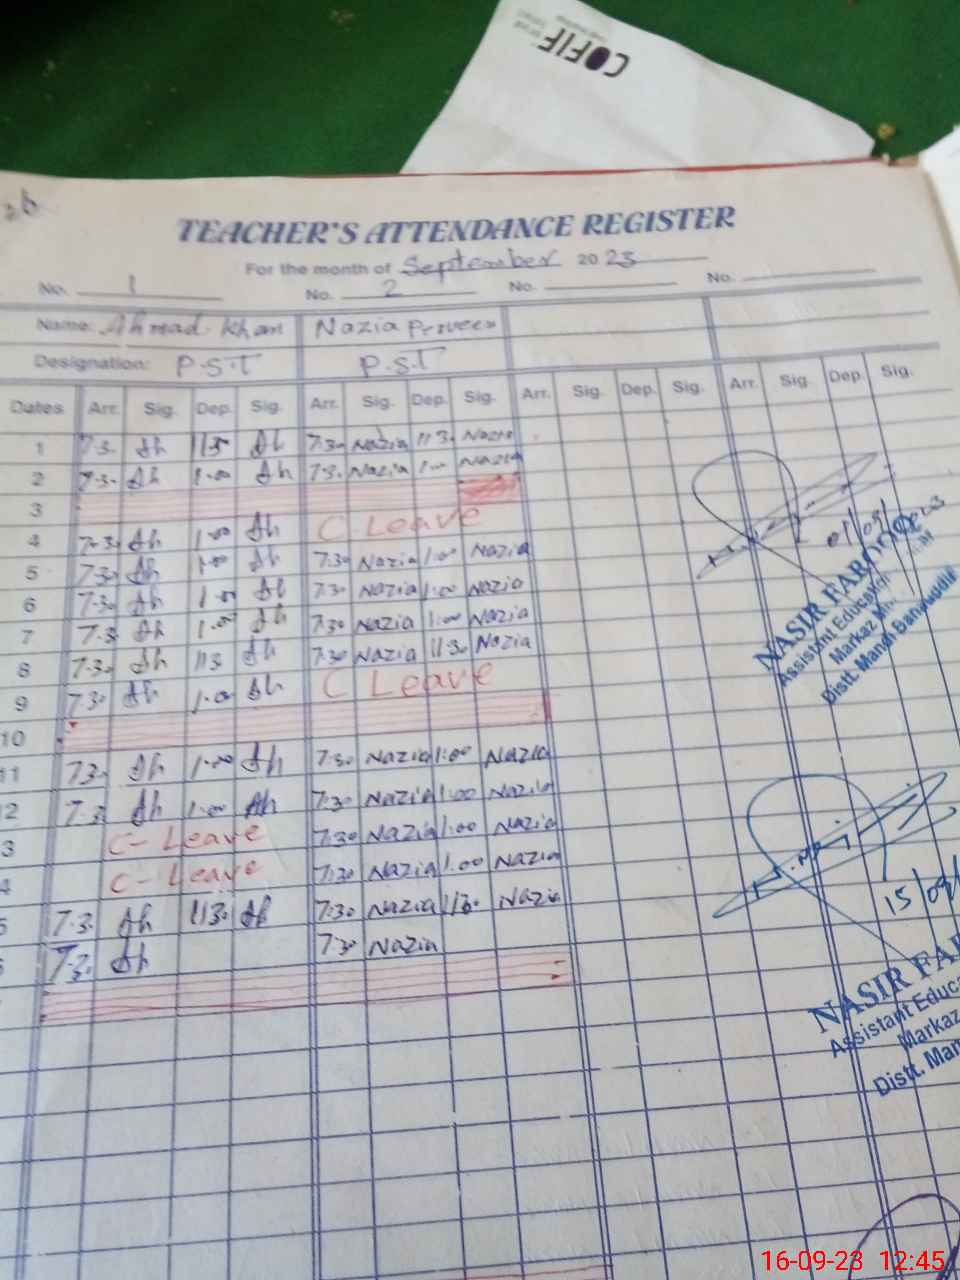 COFIF
TEACHER'S ATTENDANCE REGISTER
For the month of September 2023
No. 1 No. 2 No. No.
Name: Ahmad Khan Nazia Proveen
Designation: P.S.T P.S.T
Dates Arr. Sig. Dep. Sig. Arr. Sig. Dep. Sig. Arr. Sig. Dep. Sig. Arr. Sig. Dep. Sig.
1 7.3. Ah 113 Ah 7.30 Nazia 113. Nazia
2 7.3. Ah 1.00 Ah 7.3. Nazia 1.00 Nazia
3
4 7.3. Ah 1.00 Ah C. Leave
5 7.30 Ah 1.00 Ah 7.30 Nazia 1.00 Nazia
6 7.30 Ah 1.00 Ah 7.30 Nazia 1:00 Nazia
7 7.3. Ah 1.00 Ah 7.30 Nazia 1:00 Nazia
8 7.3. Ah 113 Ah 7.30 Nazia 11.30 Nazia
9 7.30 Ah 1.00 Ah C Leave
10
11 7.3. Ah 1.00 Ah 7.30 Nazia 1:00 Nazia
2 7.3. Ah 1.00 Ah 7.30 Nazia 1:00 Nazia
3 C- Leave 7.30 Nazia 1:00 Nazia
4 C- Leave 7.30 Nazia 1:00 Nazia
5 7.3. Ah 113. Ah 7:30 Nazia 1130 Nazia
7.3. Ah 7.30 Nazia
01/09/
NASIR FAROOQ
Assistant Education
Markaz
Distt. Mandi Bahauddin
15/09/
NASIR FA
Assistant Educa
Markaz
Distt. Man
16-09-23 12:45